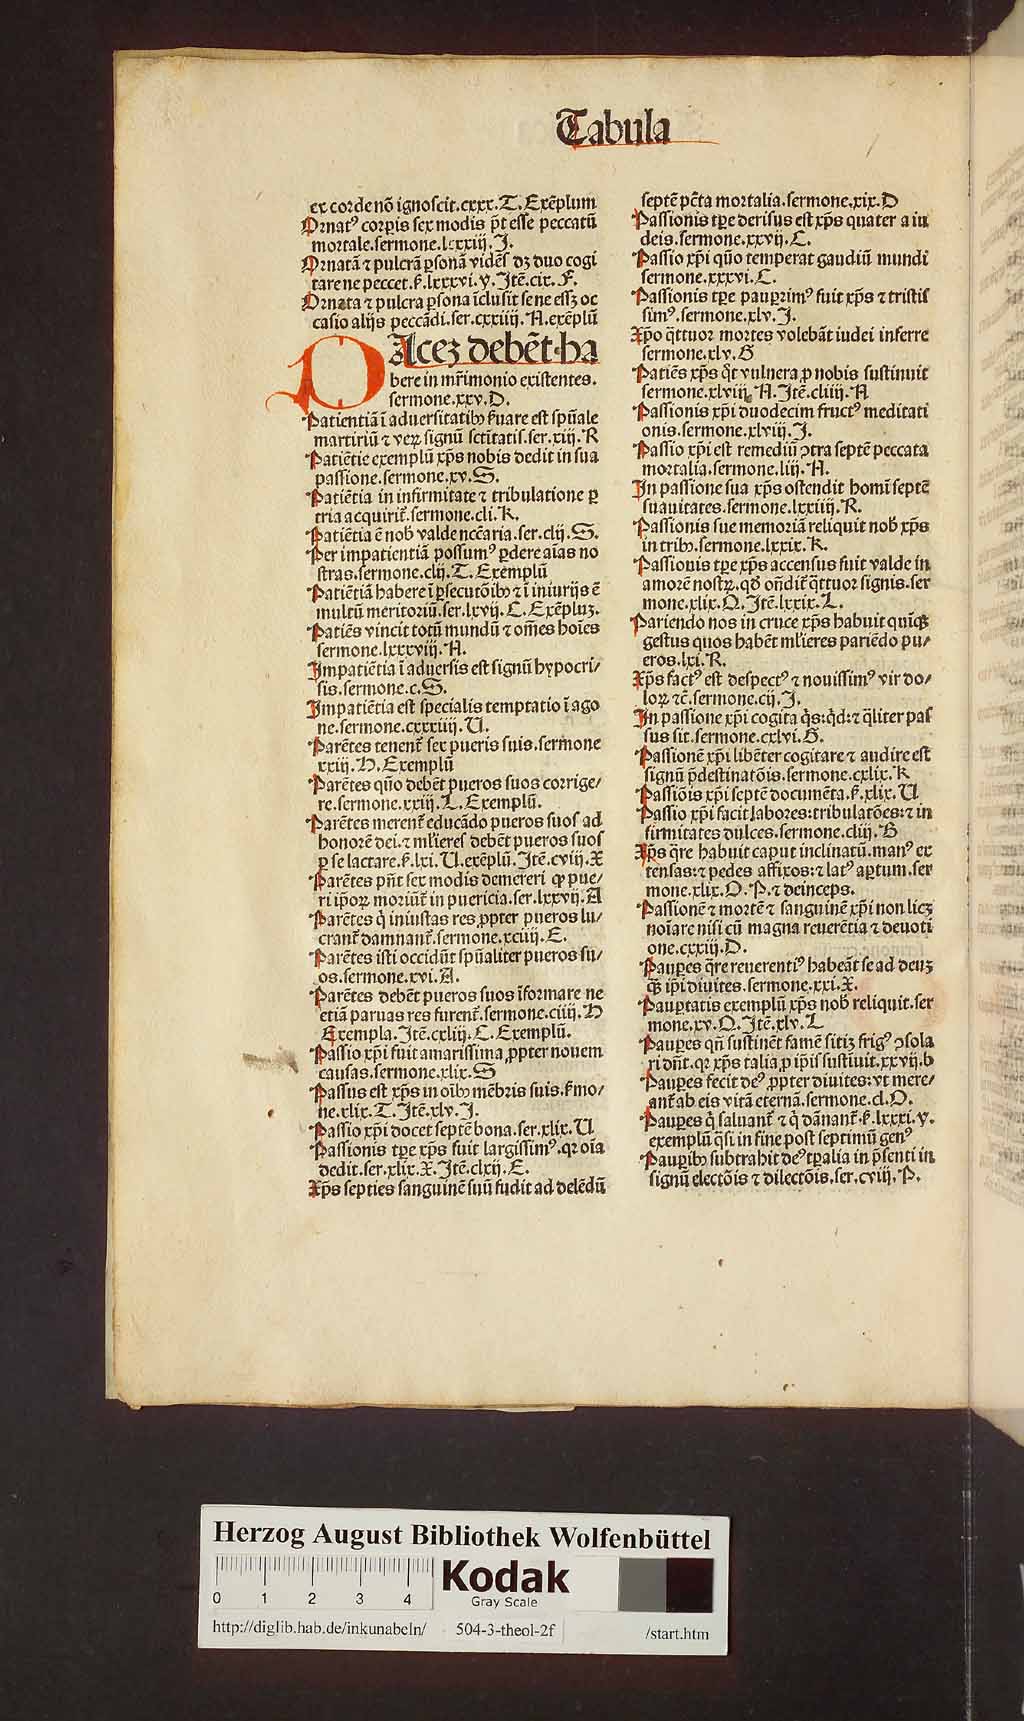 Tabula
ex corde nō ignoscit.cxxx.T.Exēplum
Ornatꝰ corꝑis sex modis p̄t esse peccatū
mortale.sermone.lxxxiij.J.
Ornatā ⁊ pulcrā ꝑsonā vidēs dꝫ duo cogi
tare ne peccet.ẜ.lxxxvi.y.Jtē.cix.F.
Ornata ⁊ pulcra ꝑsona īclusit se ne essꝫ oc
casio alijs peccādi.ser.cxxiiij.A.exēplū
PAcez debēt ha
bere in mr̄imonio existentes.
sermone.xxv.D.
Patientiā ī aduersitatibꝰ ẜuare est sp̄uale
martiriū ⁊ veꝝ signū sctītatis.ser.xiij.R
Patiētie exemplū xp̄s nobis dedit in sua
passione.sermone.xv.S.
Patiētia in infirmitate ⁊ tribulatione ꝑ
tria acquirit̄.sermone.cli.K.
Patiētia ē nob̄ valde nccāria.ser.clij.S.
Per impatientiā possumꝰ ꝑdere aīas no
stras.sermone.clij.T.Exemplū
Patiētiā habere ī ꝑsecutōibꝰ ⁊ ī iniurijs ē
multū meritoriū.ser.lxvij.C.Exēpluz.
Patiēs vincit totū mundū ⁊ om̄es hoīes
sermone.lxxxviij.A.
Jmpatiētia ī aduersis est signū hypocri/
sis.sermone.c.S.
Jmpatiētia est specialis temptatio ī ago
ne.sermone.cxxxiiij.U.
Parētes tenent̄ sex pueris suis.sermone
xxiij.H.Exemplū
Parētes quō debēt pueros suos corrige/
re.sermone.xxiij.L.Exemplū.
Parētes merent̄ educādo pueros suos ad
honorē dei.⁊ ml̄ieres debēt pueros suos
ꝑ se lactare.ẜ.lxi.U.exēplū.Jtē.cviij.X
Parētes pn̄t sex modis demereri ꝙ pue/
ri ip̄oꝝ moriūt̄ in puericia.ser.lxxvij.A
Parētes q̇ iniustas res ꝓpter pueros lu/
crant̄ damnant̄.sermone.xciiij.E.
Parētes isti occidūt sp̄ualiter pueros su/
os.sermone.xvi.A.
Parētes debēt pueros suos īformare ne
etiā paruas res furent̄.sermone.ciiij.H
Exempla.Jtē.cxliij.C.Exemplū.
Passio xp̄i fuit amarissima ꝓpter nouem
causas.sermone.xlix.S
Passus est xp̄s in oībꝰ mēbris suis.ẜmo/
ne.xlix.T.Jtē.xlv.J.
Passio xp̄i docet septē bona.ser.xlix.U
Passionis tꝑe xp̄s fuit largissimꝰ.qꝛ oīa
dedit.ser.xlix.X.Jtē.clxij.E.
Xp̄s septies sanguinē suū fudit ad delēdū
septē pc̄ta mortalia.sermone.xix.D
Passionis tꝑe derisus est xp̄s quater a iu
deis.sermone.xxvij.C.
Passio xp̄i quō temperat gaudiū mundi
sermone.xxxvi.C.
Passionis tꝑe pauꝑrimꝰ fuit xp̄s ⁊ tristis
simꝰ.sermone.xlv.J.
Xp̄o q̄ttuor mortes volebāt iudei inferre
sermone.xlv.G
Patiēs xp̄s q̄t vulnera ꝓ nobis sustinuit
sermone.xlviij.A.Jtē.cliiij.A
Passionis xp̄i duodecim fructꝰ meditati
onis.sermone.xlviij.J.
Passio xp̄i est remediū ↄtra septē peccata
mortalia.sermone.liij.A.
Jn passione sua xp̄s ostendit homī septē
suauitates.sermone.lxxiiij.R.
Passionis sue memoriā reliquit nob̄ xp̄s
in tribꝰ.sermone.lxxix.K.
Passionis tꝑe xp̄s accensus fuit valde in
amorē nostꝝ.qd̄ on̄dit̄ q̄ttuor signis.ser
mone.xlix.O.Jtē.lxxix.L.
Pariendo nos in cruce xp̄s habuit quīqꝫ
gestus quos habēt ml̄ieres pariēdo pu/
eros.lxi.R.
Xp̄s factꝰ est despectꝰ ⁊ nouissimꝰ vir do/
loꝝ ⁊c̄.sermone.cij.J.
Jn passione xp̄i cogita q̇s:q̇d:⁊ q̄liter pas
sus sit.sermone.cxlvi.G.
Passionē xp̄i libēter cogitare ⁊ audire est
signū p̄destinatōis.sermone.cxlix.K
Passiōis xp̄i septē documēta.ẜ.xlix.U
Passio xp̄i facit labores:tribulatōes:⁊ in
firmitates dulces.sermone.cliij.B
Xp̄s q̄re habuit caput inclinatū.manꝰ ex
tensas:⁊ pedes affixos:⁊ latꝰ aꝑtum.ser
mone.xlix.O.P.⁊ deinceps.
Passionē ⁊ mortē ⁊ sanguinē xp̄i non licꝫ
noīare nisi cū magna reuerētia ⁊ deuoti
one.cxxiij.D.
Pauꝑes q̄re reuerentiꝰ habeāt se ad deuꝫ
qꝫ ip̄i diuites.sermone.xxi.X.
Pauꝑtatis exemplū xp̄s nob̄ reliquit.ser
mone.xv.O.Jtē.xlv.L
Pauꝑes qn̄ sustinēt famē sitiꝫ frigꝰ ↄsola
ri dn̄t.qꝛ xp̄s talia ꝓ ip̄is sustiuit.xxvij.b
Pauꝑes fecit deꝰ ꝓpter diuites:vt mere/
ant̄ ab eis vitā eternā.sermone.cl.O.
Pauꝑes q̇ saluant̄ ⁊ q̇ dānant̄.ẜ.lxxxi.y.
exemplū q̄si in fine post septimū genꝰ
Pauꝑibꝰ subtrahit deꝰ tꝑalia in p̄senti in
signū electōis ⁊ dilectōis.ser.cviij.P.
Herzog August Bibliothek Wolfenbüttel
0 1 2 3 4
Kodak
Gray Scale
http://diglib.hab.de/inkunabeln/ 504-3-theol-2f /start.htm